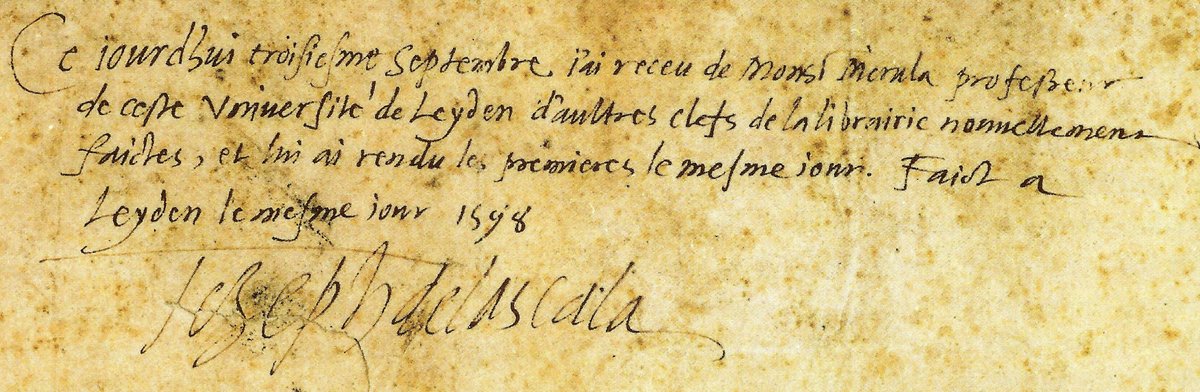 Ce iourdhui troisiesme Septembre i'ai receu de Monsr Merula professeur
de ceste Vniversité de Leyden d'aultres clefs de la librairie nouuellement
faictes, et lui ai rendu les premieres le mesme iour. Faict a
Leyden le mesme iour 1598
Iosephdelascala